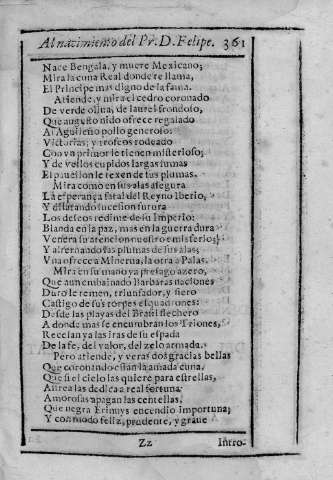 Al nacimiento del Pr. D. Felipe. 361
Nace Bengala, y muere Mexicano;
Mira la cuna Real donde te llama,
El Principe mas digno de la fama.
Atiende, y mira el cedro coronado
De verde oliua, de laurel frondoso,
Que augusto nido ofrece regalado
Al Aguileño pollo generoso:
Victorias, y trofeos rodeado
Con vn primor le tienen misterioso;
Y de vellos cupidos largas sumas
El pauellon le texen de sus plumas.
Mira como en sus alas assegura
La esperança fatal del Reyno Iberio,
Y dilatando sucession futura
Los deseos redime de su Imperio:
Blanda en la paz, mas en la guerra dura
Venera su atencion nuestro emisferio;
Y alternando las plumas de sus alas,
Vna ofrece a Minerna, la otra a Palas.
Mira en su mano ya presago azero,
Que aun embainado Barbaras naciones
Duro le temen, triunfador, y fiero
Castigo de sus torpes esquadrones:
Desde las playas del Brasil flechero
A donde mas se encumbran los Triones,
Recelan ya las iras de su espada
De la fe, del valor, del zelo armada.
Pero atiende, y veras dos gracias bellas
Que coronando estàn la amada cuna.
Que si el cielo las quiere para estrellas,
Astrea las dedica a real fortuna
Amorosas apagan las centellas,
Que negra Erinnys encendio importuna;
Y con modo feliz, prudente, y graue
Zz Intro-